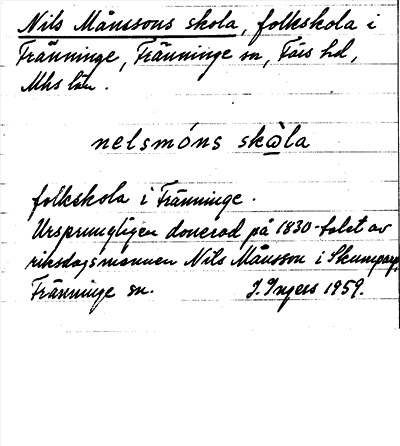 Nils Månssons skola, folkskola i
Tranninge, Tranninge sn, Färs hd,
Mhs län.
nelsmóns skòla
folkskola i Tranninge.
Ursprungligen donerad på 1830-talet av
riksdagsmannen Nils Månsson i Skumparp,
Tranninge sn. I. Ingers 1959.